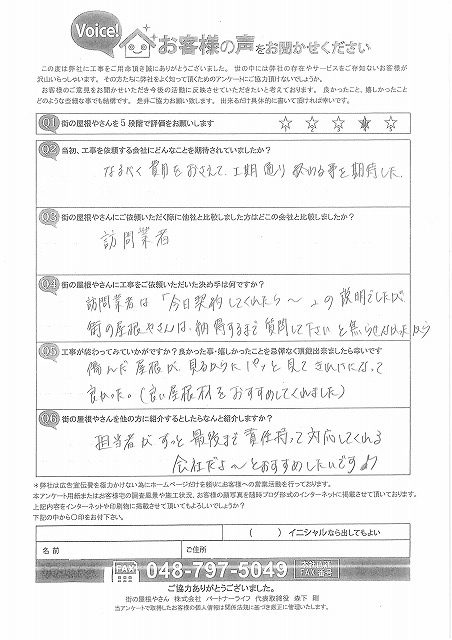 Voice!
お客様の声をお聞かせください
この度は弊社に工事をご用命頂き誠にありがとうございました。世の中には弊社の存在やサービスをご存知ないお客様が
沢山いらっしゃいます。その方たちに弊社をよく知って頂くためのアンケートにご協力頂けないでしょうか。
お客様のご意見をお聞かせいただき今後の活動に反映させていただきたいと考えております。良かったこと、嬉しかったこと
どのような些細な事でも結構です。是非ご協力お願い致します。出来るだけ具体的に書いて頂ければ幸いです。
Q1 街の屋根やさんを5段階で評価をお願いします ☆ ☆ ☆ ☆ ☆
Q2 当初、工事を依頼する会社にどんなことを期待されていましたか?
なるべく費用をおさえて、工期通り 終める事を期待した。
Q3 街の屋根やさんにご依頼いただく際に他社と比較しました方はどこの会社と比較しましたか?
訪問業者
Q4 街の屋根やさんに工事をご依頼いただいた決め手は何ですか?
訪問業者は「今日契約してくれたら〜」の説明でしたが
街の屋根やさんは、納得するまで質問して下さいと焦らせなかったから
Q5 工事が終わってみていかがですか?良かった事・嬉しかったことを忌憚なく頂戴出来ましたら幸いです
傷んだ屋根が、見るからにパッと見てきれいになって
良かった。(良い屋根材をおすすめしてくれました)
Q6 街の屋根やさんを他の方に紹介するとしたらなんと紹介しますか?
担当者がずっと最後まで責任持って対応してくれる
会社だよ〜とおすすめしたいです♪
*弊社は広告宣伝費を極力かけない為にホームページだけを頼りにお客様への営業活動を行っております。
本アンケート用紙またはお客様宅の調査風景や施工状況、お客様の顔写真を随時ブログ形式のインターネットに掲載させて頂いております。
上記内容をインターネットや印刷物に掲載させて頂いてもよろしいでしょうか?
下記の中から〇印をお付下さい。
( ) イニシャルなら出してもよい
名前 ご住所
FAX 048-797-5049 FAX番号
ご協力ありがとうございました。
街の屋根やさん 株式会社 パートナーライフ 代表取締役 森下 剛
当アンケートで取得したお客様の個人情報は関係法規に基づき厳正に管理いたします。